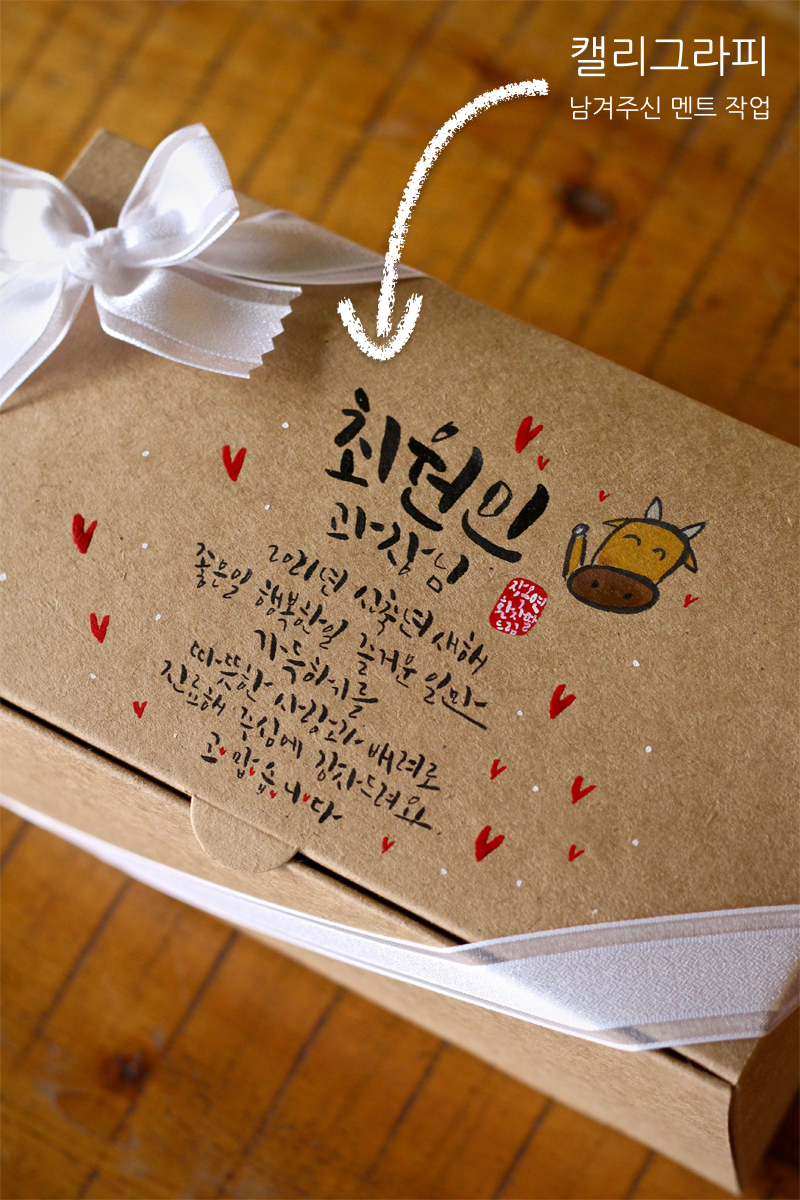 캘리그라피
남겨주신 멘트 작업
최원민
과장님
2021년 신축년 새해
좋은일 행복한일 즐거운 일만
가득하기를
따뜻한 사랑과 배려로
진료해 주심에 감사드려요.
고맙습니다
환자딸
드림